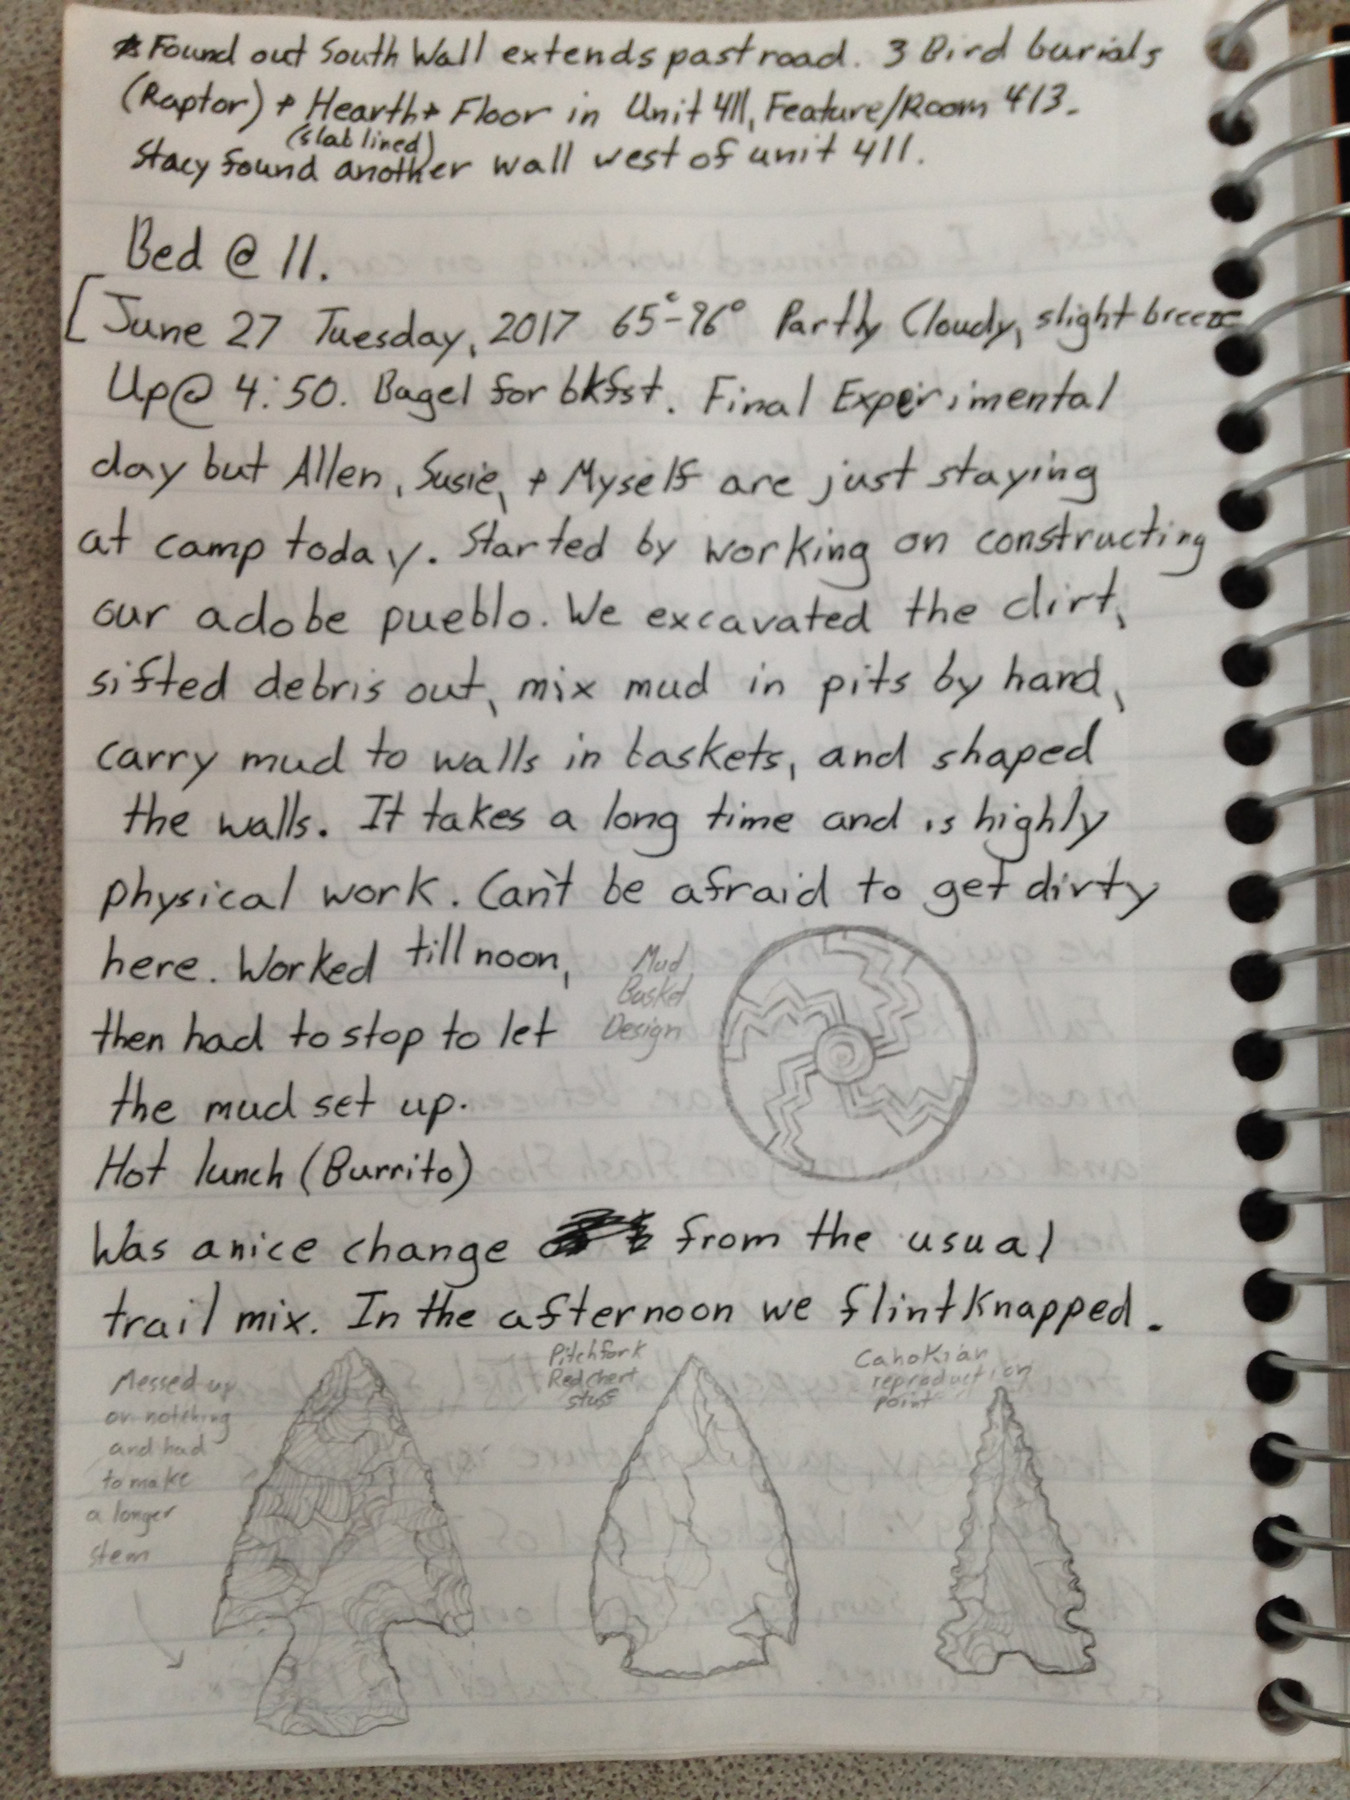 * Found out South Wall extends past road. 3 Bird burials
(Raptor) + Hearth + Floor in Unit 411, Feature/Room 413.
(slab lined)
Stacy found another wall west of unit 411.
Bed @ 11.
[June 27 Tuesday, 2017 65°-96° Partly Cloudy, slight breeze
Up@ 4:50. Bagel for bkfst. Final Experimental
day but Allen, Susie, + Myself are just staying
at camp today. Started by working on constructing
our adobe pueblo. We excavated the dirt,
sifted debris out, mix mud in pits by hand,
carry mud to walls in baskets, and shaped
the walls. It takes a long time and is highly
physical work. Can't be afraid to get dirty
here. Worked till noon,
then had to stop to let
the mud set up.
Mud
Basket
Design
Hot lunch (Burrito)
Was a nice change from the usual
trail mix. In the afternoon we flintknapped.
Messed up
on notching
and had
to make
a longer
stem
Pitchfork
Red chert
stuff
Cahokian
reproduction
point